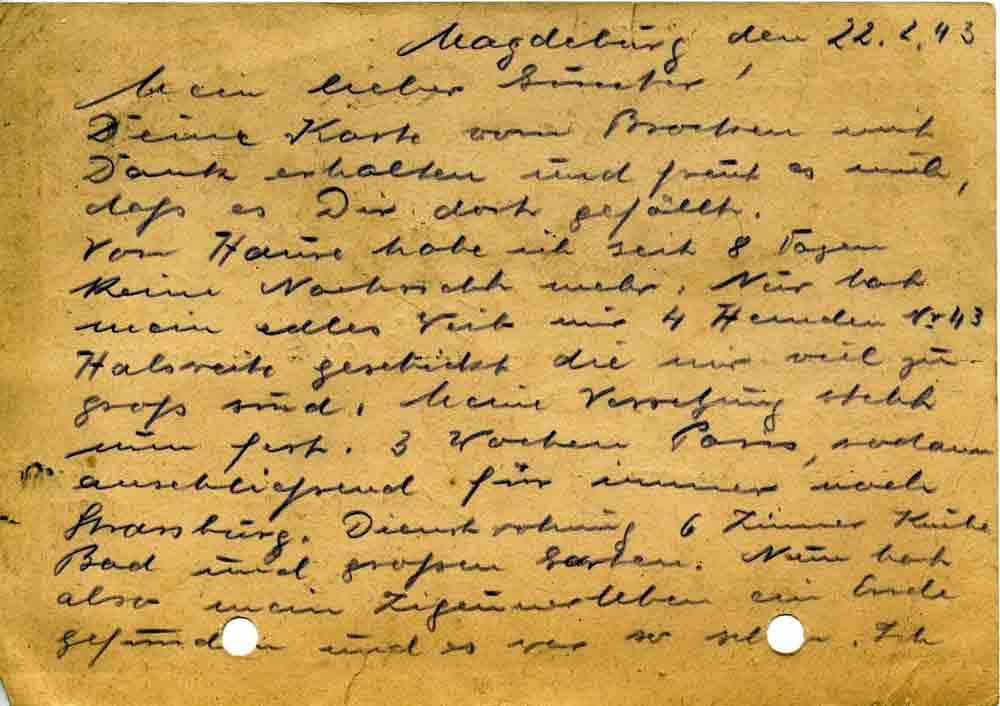 Magdeburg, den 22.2.43
Mein lieber Günter!
Deine Karte vom Brocken mit
Dank erhalten und freut es mich,
daß es Dir dort gefällt.
Von Hause habe ich seit 8 Tagen
keine Nachricht mehr. Nur hat
mein edles Weib mir 4 Hemden Nr 43
Halsweite geschickt die mir viel zu
groß sind. Meine Versetzung steht
nun fest. 3 Wochen Paris, sodann
anschließend für immer nach
Strassburg. Dienstwohnung 6 Zimmer Küche
Bad und großen Garten. Nun hat
also mein Zigeunerleben ein Ende
gefunden und es war so schön. Ich